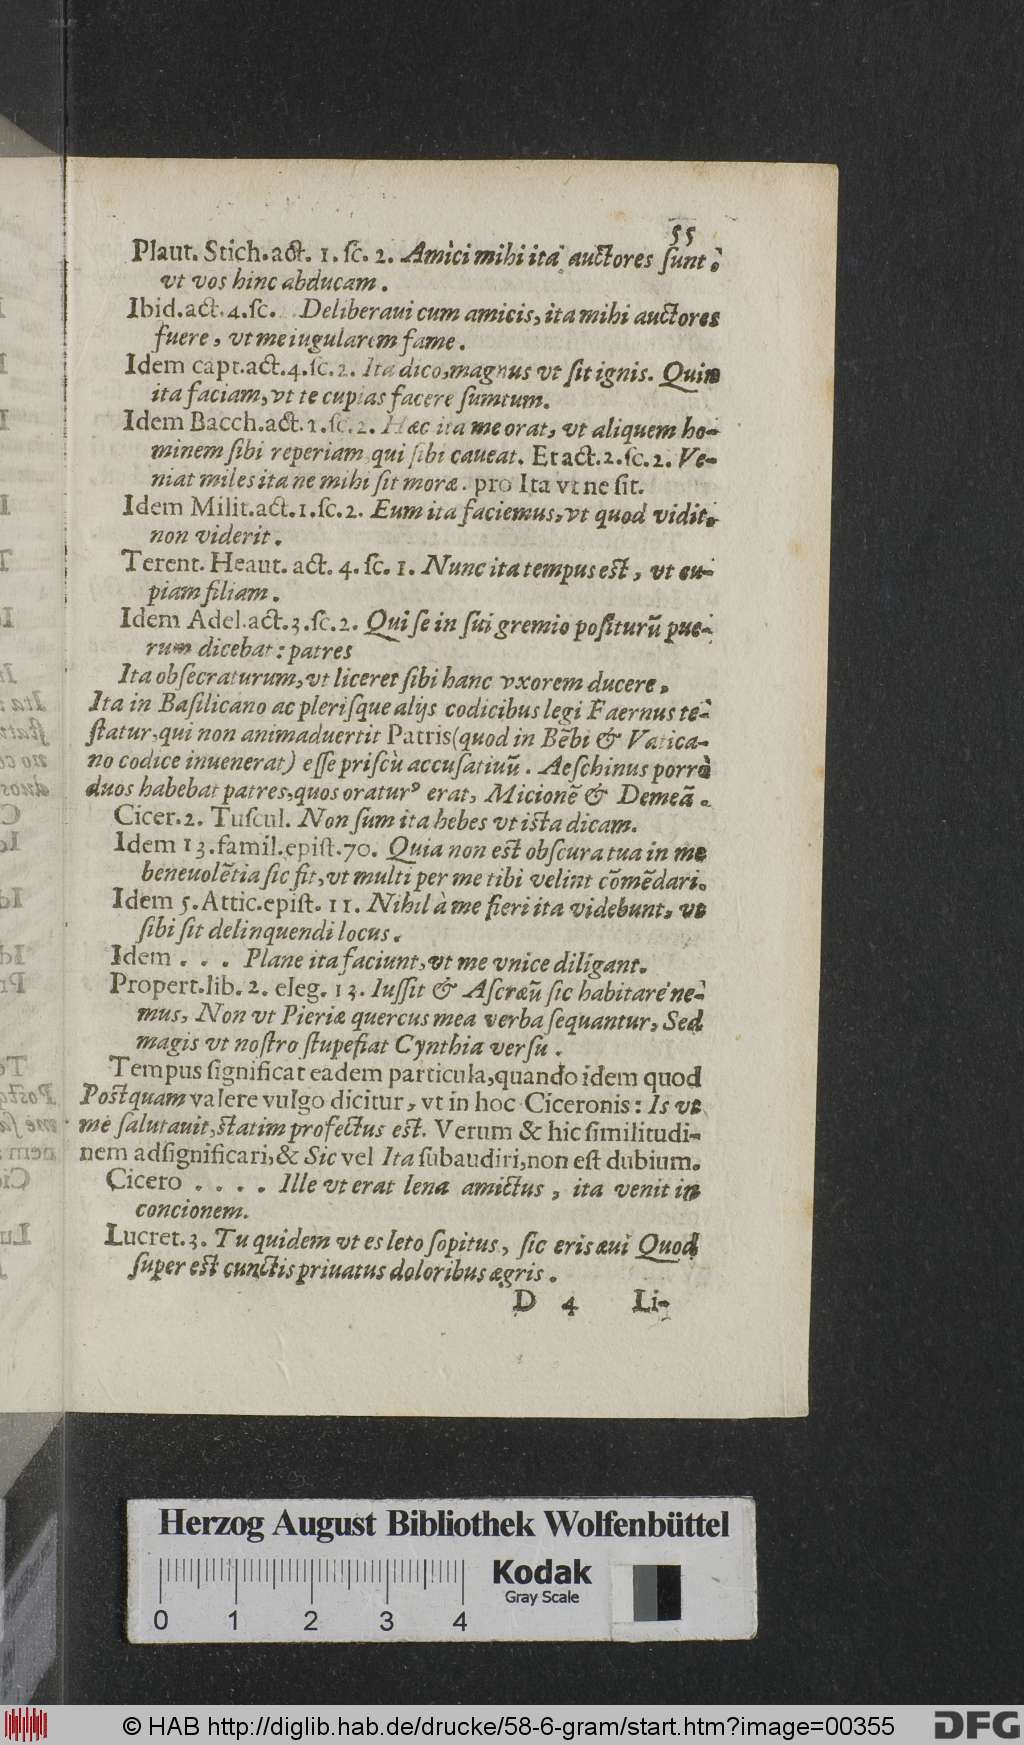 55
Plaut. Stich. act. 1. ſc. 2. Amici mihi ita auctores ſunt,
vt vos hinc abducam.
Ibid. act. 4. ſc. . Deliberaui cum amicis, ita mihi auctores
fuere, vt me iugularem fame.
Idem capt. act. 4. ſc. 2. Ita dico, magnus vt ſit ignis. Quin
ita faciam, vt te cupias facere ſumtum.
Idem Bacch. act. 1. ſc. 2. Hæc ita me orat, vt aliquem ho-
minem ſibi reperiam, qui ſibi caueat. Et act. 2. ſc. 2. Ve-
niat miles ita ne mihi ſit moræ. pro Ita vt ne ſit.
Idem Milit. act. 1. ſc. 2. Eum ita faciemus, vt quod vidit,
non viderit.
Terent. Heaut. act. 4. ſc. 1. Nunc ita tempus eſt, vt cu-
piam filiam.
Idem Adel. act. 3. ſc. 2. Qui ſe in ſui gremio poſiturũ pue-
rum dicebat: patres
Ita obſecraturum, vt liceret ſibi hanc vxorem ducere.
Ita in Baſilicano ac pleriſque alijs codicibus legi Faernus te-
ſtatur, qui non animaduertit Patris (quod in Bẽbi & Vatica-
no codice inuenerat) eſſe priſcũ accuſatiuũ. Aeſchinus porrò
duos habebat patres, quos oraturꝰ erat, Micionẽ & Demeã.
Cicer. 2. Tuſcul. Non ſum ita hebes vt iſta dicam.
Idem 13. famil. epiſt. 70. Quia non eſt obſcura tua in me
beneuolẽtia ſic fit, vt multi per me tibi velint cõmẽdari.
Idem 5. Attic. epiſt. 11. Nihil à me fieri ita videbunt, vt
ſibi ſit delinquendi locus.
Idem . . . Plane ita faciunt, vt me vnice diligant.
Propert. lib. 2. eleg. 13. Iuſſit & Aſcræũ ſic habitare ne-
mus, Non vt Pieriæ quercus mea verba ſequantur, Sed
magis vt noſtro ſtupefiat Cynthia verſu.
Tempus ſignificat eadem particula, quando idem quod
Poſtquam valere vulgo dicitur, vt in hoc Ciceronis: Is vt
me ſalutauit, ſtatim profectus eſt. Verum & hic ſimilitudi-
nem adſignificari, & Sic vel Ita ſubaudiri, non eſt dubium.
Cicero . . . . Ille vt erat lena amictus, ita venit in
concionem.
Lucret. 3. Tu quidem vt es leto ſopitus, ſic eris æui Quod
ſuper eſt cunctis priuatus doloribus ægris.
D 4 Li-
Herzog August Bibliothek Wolfenbüttel
Kodak
Gray Scale
0 1 2 3 4
© HAB http://diglib.hab.de/drucke/58-6-gram/start.htm?image=00355
DFG